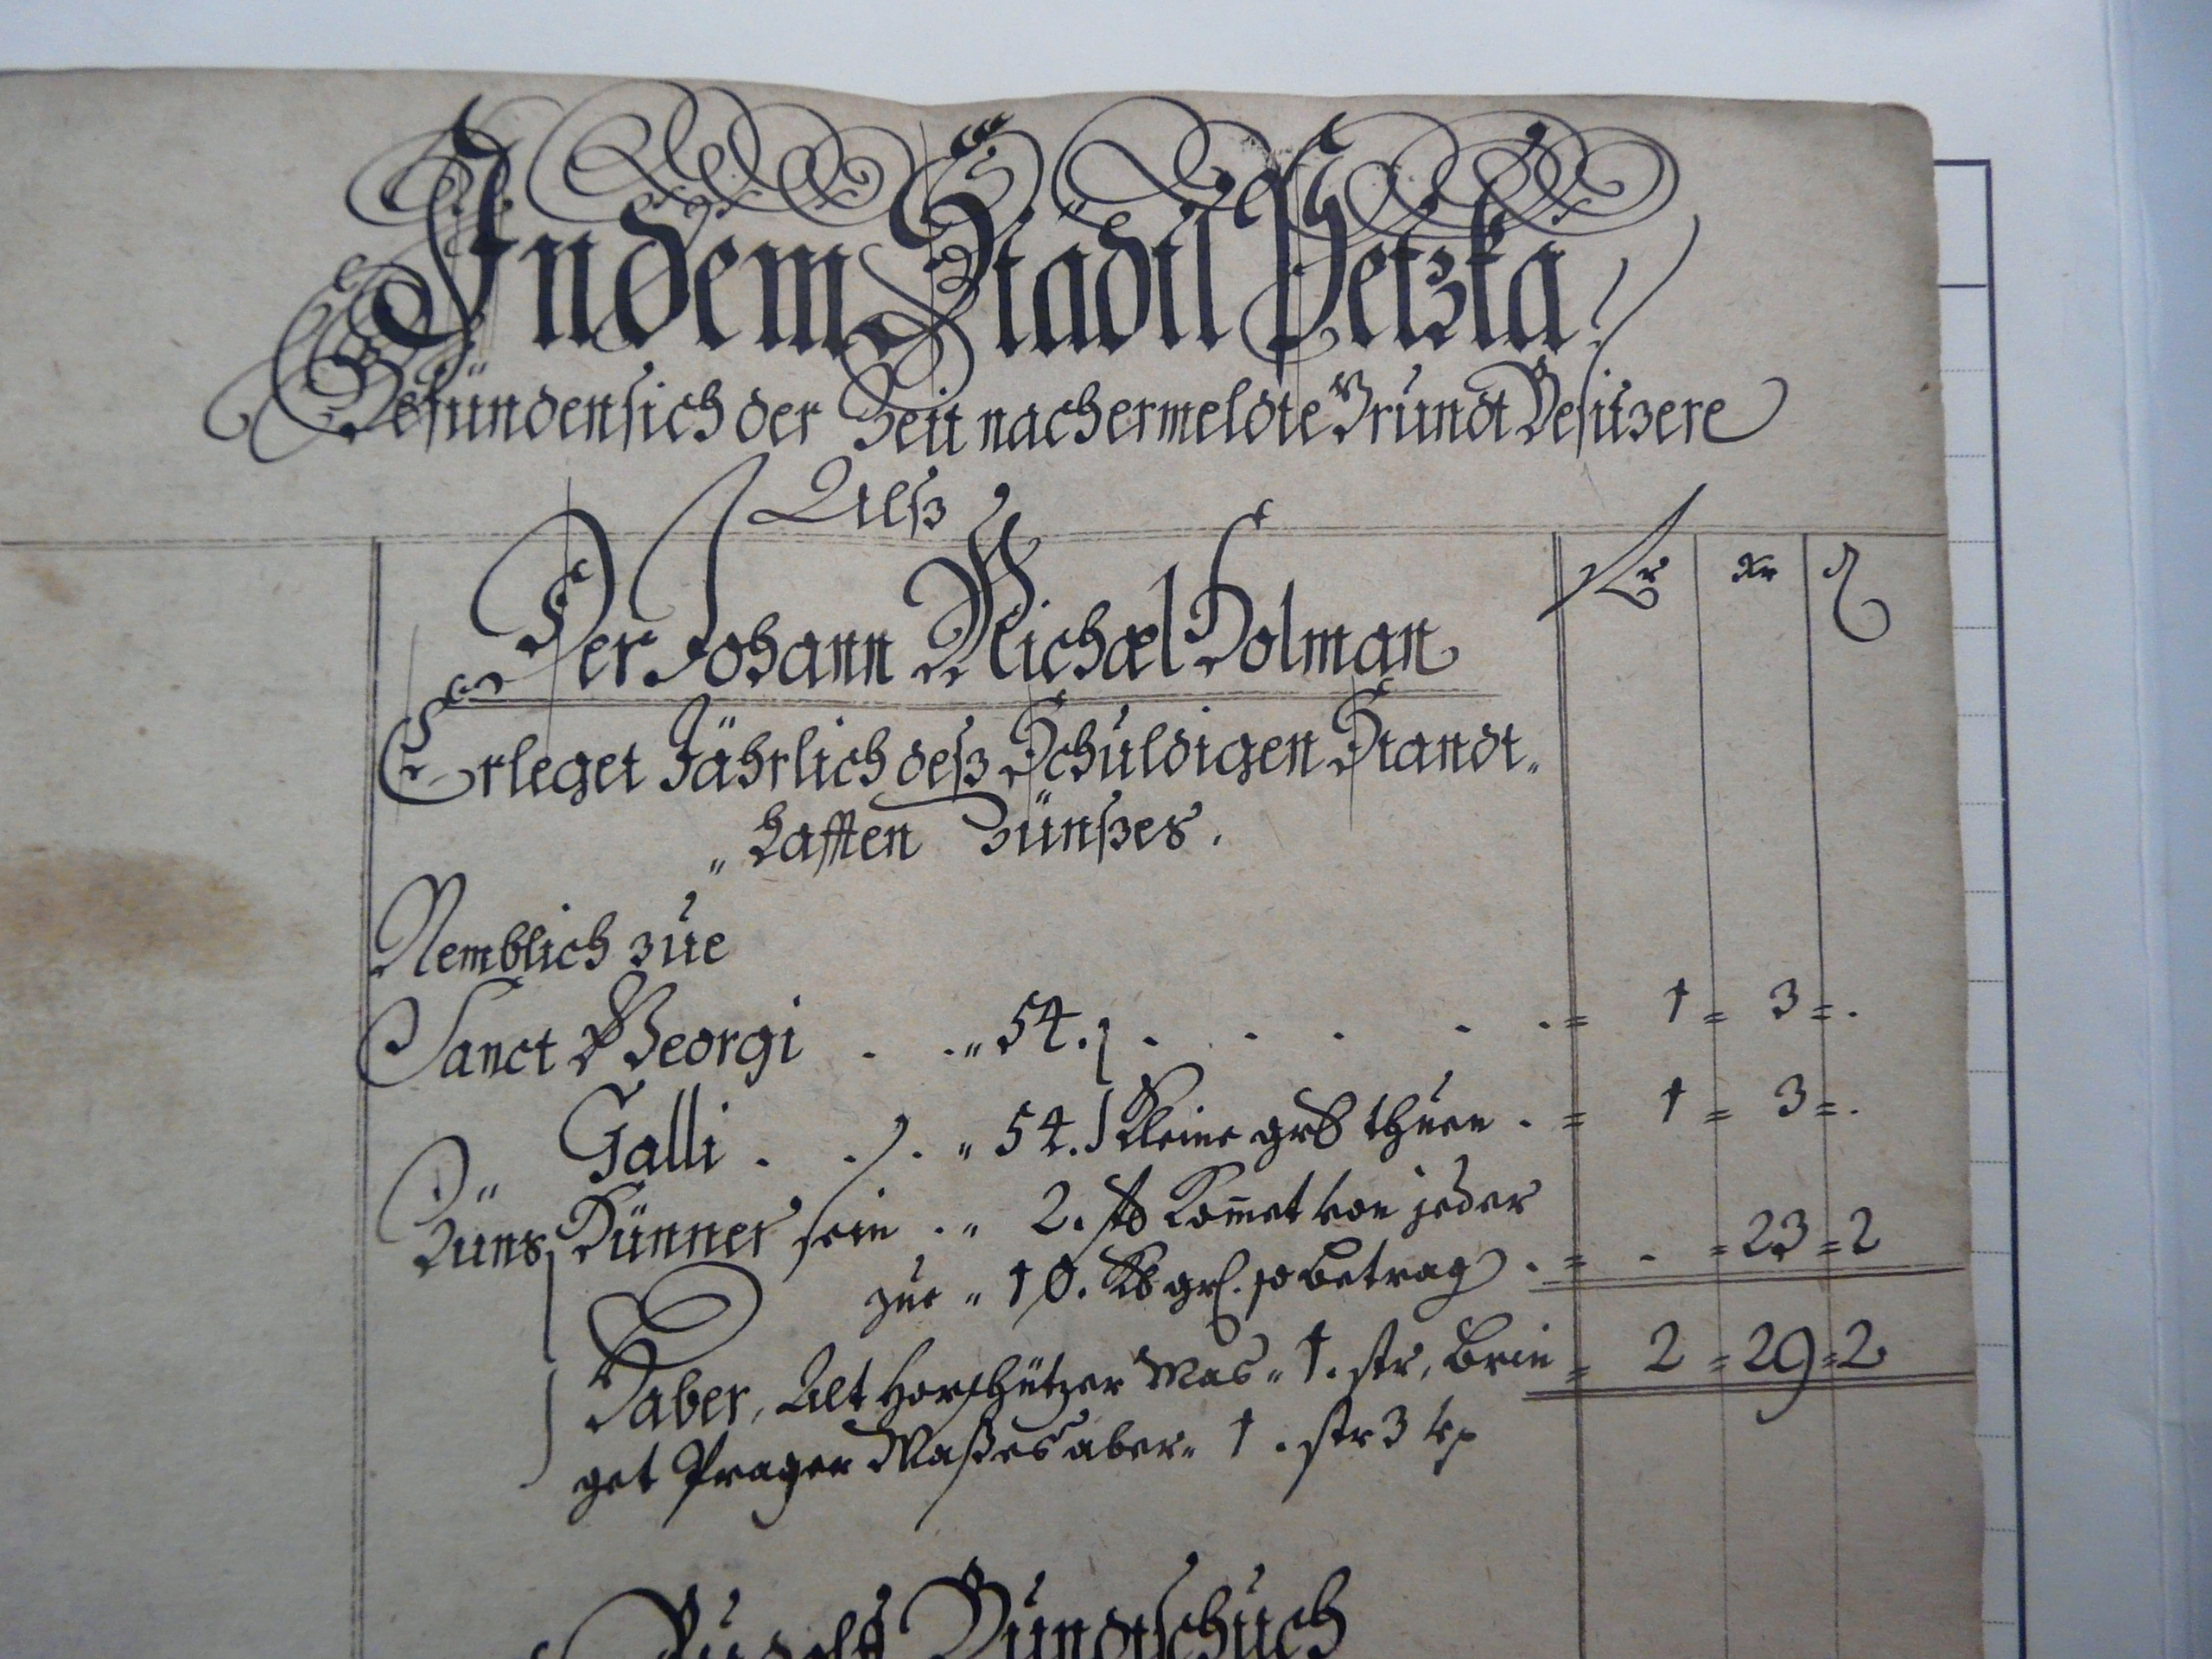 In dem Städtl Petzka
Befünden sich der Zeit nachermeldte Grundt Besitzere
Alß
Der Johann Michæl Dolman
fl xr ₰
Erleget Jährlich deß Schuldigen Standt„
„hafften Zünßes.
Nemblich zue
Sanct Georgi . . „ 54. . . . . . = 1 = 3 = .
Galli . . . „ 54. Kleine grß thuen . = 1 = 3 = .
Züns Hünner sein . „ 2. st Kom̄et von jeder
zue „ 10. Kl grl. so betragt . = . = 23 = 2
Haber, Alt Horschützer Mas „ 1. str, brin = 2 = 29 = 2
get Prager Maßes aber „ 1 . str 3
Rudolff Bundtschuch